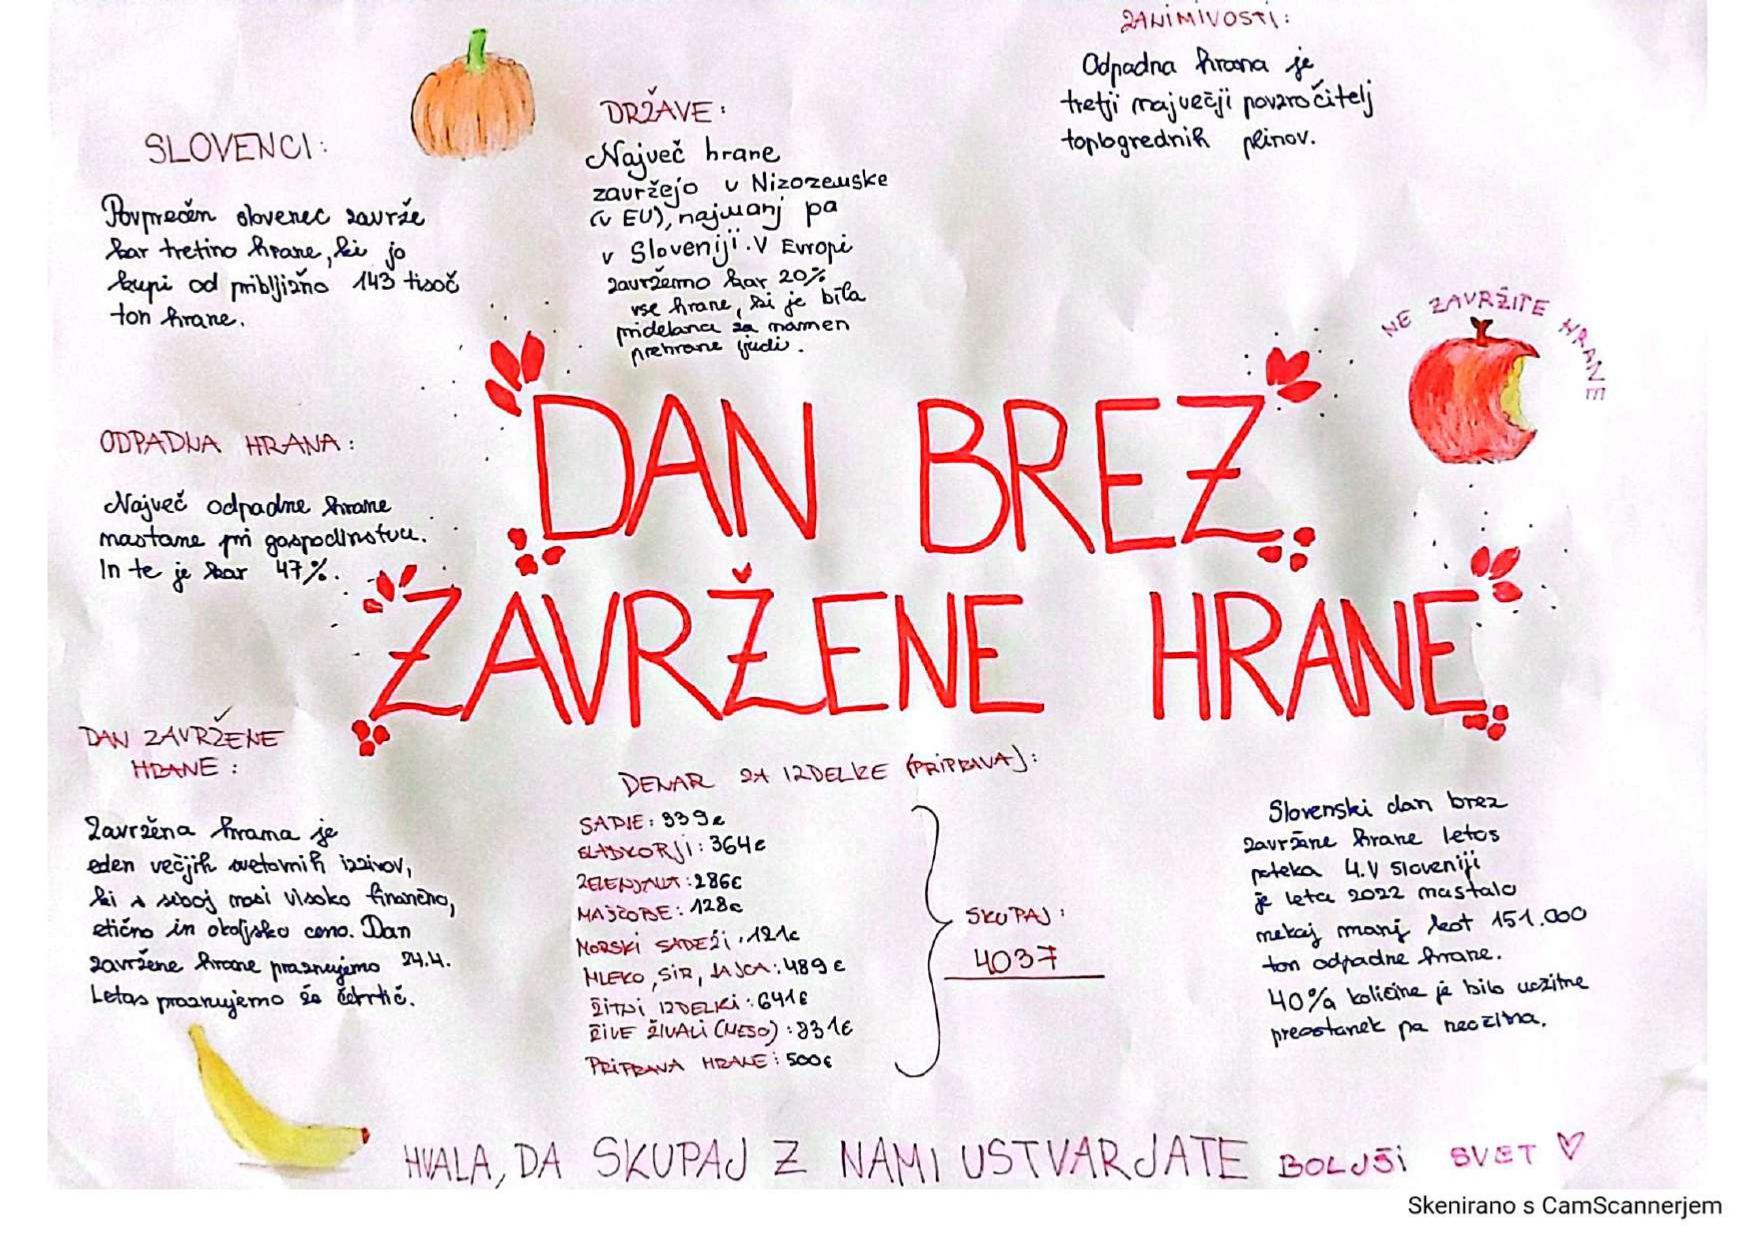 SLOVENCI:
Povprečen slovenec zavrže
kar tretino hrane, ki jo
kupi od približno 143 tisoč
ton hrane.
DRŽAVE:
Največ hrane
zavržejo v Nizozemske
(v EU), najmanj pa
v Sloveniji. V Evropi
zavržemo kar 20%
vse hrane, ki je bila
pridelana za namen
prehrane ljudi.
ZANIMIVOSTI:
Odpadna hrana je
tretji največji povzročitelj
toplogrednih plinov.
NE ZAVRŽITE HRANE
ODPADNA HRANA:
Največ odpadne hrane
nastane pri gospodinstvu.
In te je kar 47%.
DAN BREZ
ZAVRŽENE HRANE
DAN ZAVRŽENE
HRANE:
Zavržena hrana je
eden večjih svetovnih izzivov,
ki s seboj nosi visoko finančno,
etično in okoljsko ceno. Dan
zavržene hrane praznujemo 24.4.
Letos praznujemo že četrtič.
DENAR ZA IZDELKE (PRIPRAVA):
SADJE: 339€
SLADKORJI: 364€
ZELENJAVA: 286€
MAŠČOBE: 128€
MORSKI SADEŽI: 121€
MLEKO, SIR, JAJCA: 489€
ŽITNI IZDELKI: 641€
ŽIVE ŽIVALI (MESO): 331€
PRIPRAVA HRANE: 500€
SKUPAJ:
4037
Slovenski dan brez
zavržene hrane letos
poteka 4. V Sloveniji
je leta 2022 nastalo
nekaj manj kot 151.000
ton odpadne hrane.
40% količine je bilo užitne
preostanek pa neužitna.
HVALA, DA SKUPAJ Z NAMI USTVARJATE BOLJŠI SVET
Skenirano s CamScannerjem